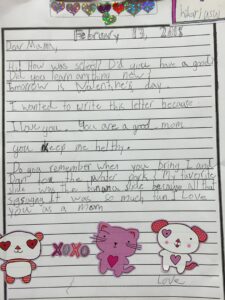 February 13, 2018
Dear Mama,
Hi! How was school? Did you have a good
Did you learn anything new?
Tomorrow is Valentine's day.
I wanted to write this letter because
I love you. You are a good mom
you keep me helthy.
Do you remember when you bring I and
to the water park? My favorite
slide was the banana slide because all that
It was so much fun I love
you as a mom
XOXO
Love